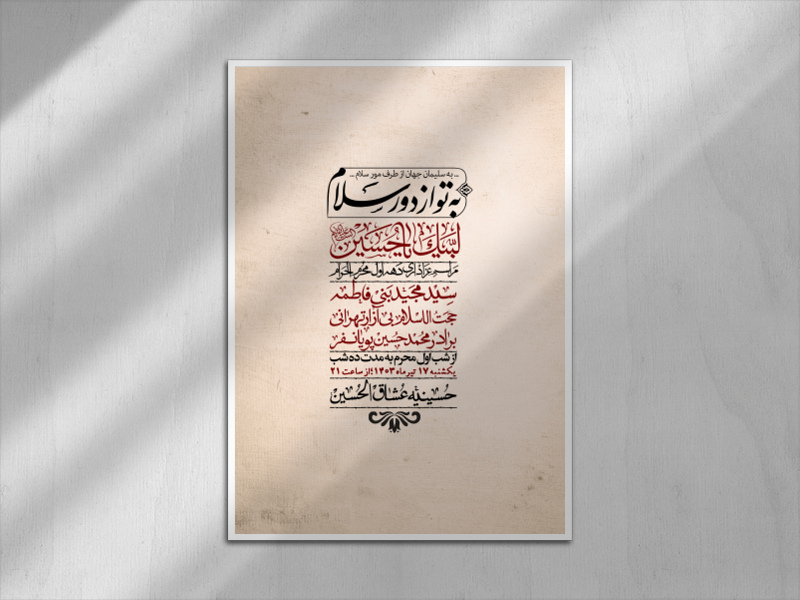 ... به سلیمان جهان از طرف مور سلام ...
به تو از دور سلام
لبیک یا حسین
مراسم عزاداری دهه اول محرم الحرام
سید مجید بنی فاطمه
حجت الاسلام بی آزار تهرانی
برادر محمد حسین پویانفر
از شب اول محرم به مدت ده شب
یکشنبه ۱۷ تیر ماه ۱۴۰۳؛ از ساعت ۲۱
حسینیه عشاق الحسین